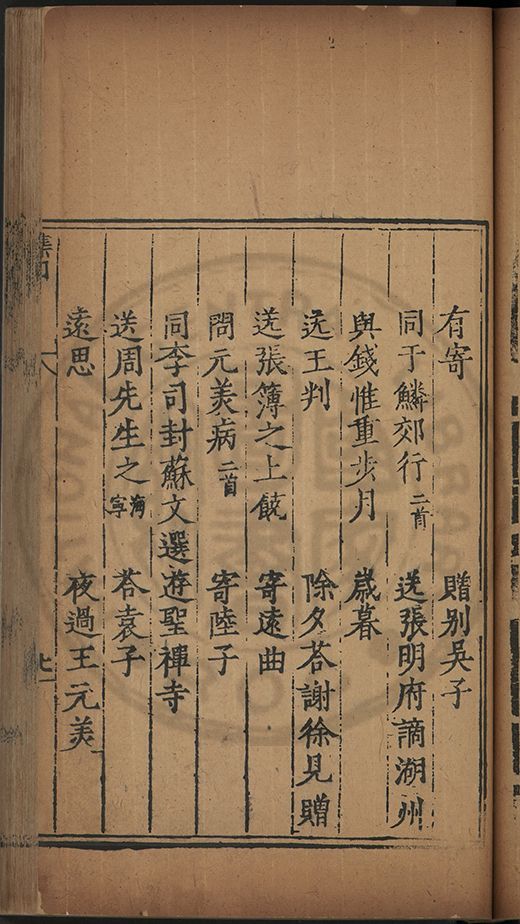 有寄　贈别吳子
同于鱗郊行二首　送張明府謫湖州
與錢惟重步月　歲暮
送王判　除夕答謝徐見贈
送張簿之上饒　寄遠曲
問元美病二首　寄陸子
同李司封蘇文選遊聖禪寺
送周先生之海寧　答袁子
遠思　夜過王元美